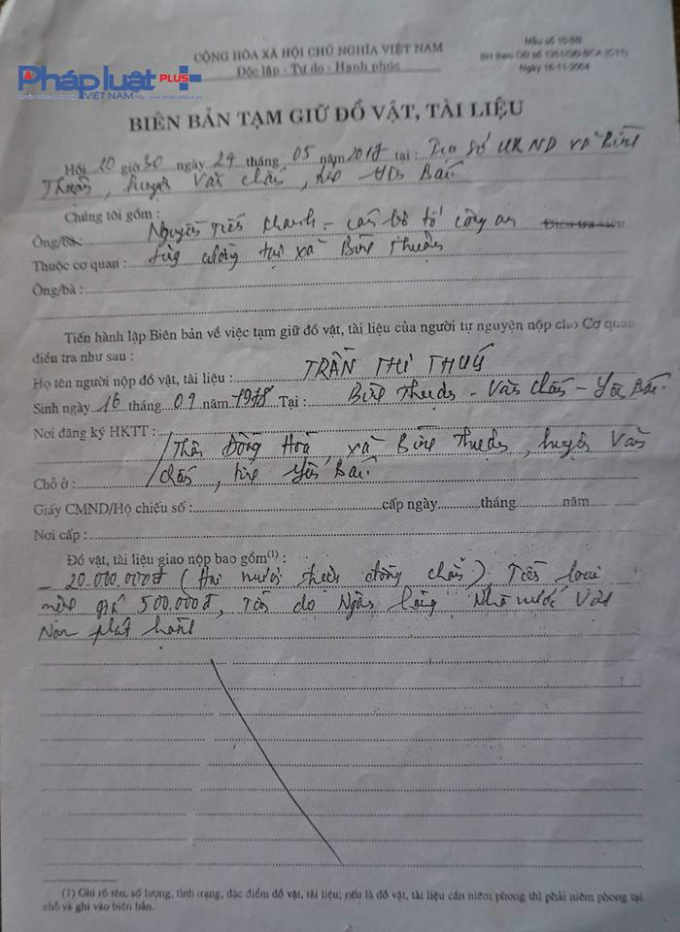 Pháp luật PLUS
VIỆT NAM
CỘNG HÒA XÃ HỘI CHỦ NGHĨA VIỆT NAM
Độc lập - Tự do - Hạnh phúc
Mẫu số
Ngày 16-11-2004
BIÊN BẢN TẠM GIỮ ĐỒ VẬT, TÀI LIỆU
Hồi giờ 30 ngày 29 tháng 05 năm tại: Trụ Sở UBND xã Bình
Thuận, huyện Văn Chấn, Yên Bái
Chúng tôi gồm:
Ông/Bà: Nguyễn Tiến Khanh - cán bộ tổ công an
Thuộc cơ quan: tăng cường tại xã Bình Thuận
Ông/bà:
Tiến hành lập Biên bản về việc tạm giữ đồ vật, tài liệu của người tự nguyện nộp cho Cơ quan
điều tra như sau:
Họ tên người nộp đồ vật, tài liệu: TRẦN THỊ THUÝ
Sinh ngày 16 tháng 09 năm 1978 Tại: Bình Thuận - Văn Chấn - Yên Bái.
Nơi đăng ký HKTT: Thôn Đồng Hoà, xã Bình Thuận, huyện Văn
Chỗ ở: Chấn, tỉnh Yên Bái.
Giấy CMND/Hộ chiếu số: cấp ngày tháng năm
Nơi cấp:
Đồ vật, tài liệu giao nộp bao gồm(1):
- 20.000.000đ (Hai mươi triệu đồng chẵn), Tiền loại
mệnh giá 500.000đ, tiền do Ngân hàng Nhà nước Việt
Nam phát hành
(1) Ghi rõ tên, số lượng, tình trạng, đặc điểm đồ vật, tài liệu; nếu là đồ vật, tài liệu cần niêm phong thì phải niêm phong tại
chỗ và ghi vào biên bản.